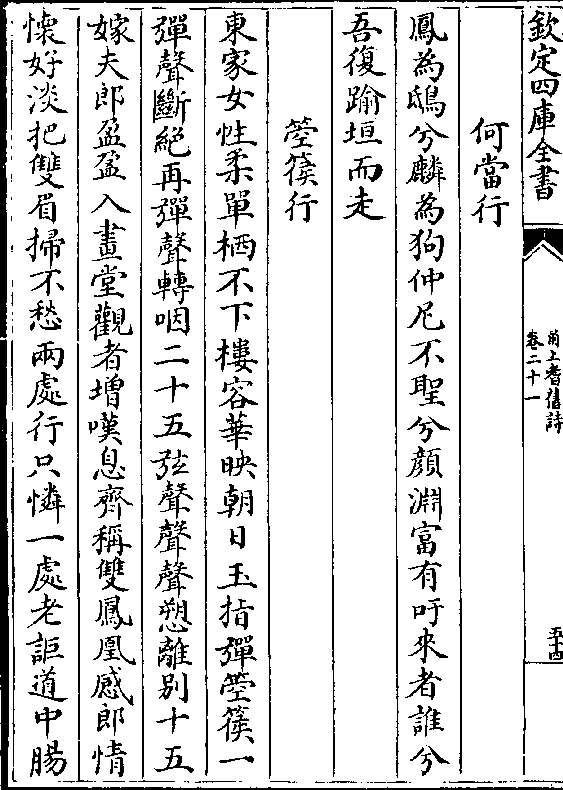 欽定四庫全書
甬上耆舊詩
卷二十一
五十四
何當行
鳳為鴟兮麟為狗仲尼不聖兮顔淵富有吁來者誰兮
吾復踰垣而走
箜篌行
東家女性柔單栖不下樓容華映朝日玉指彈箜篌一
彈聲斷絕再彈聲轉咽二十五弦聲聲聲愬離别十五
嫁夫郎盈盈入畫堂觀者増嘆息齊稱雙鳳凰感郎情
懐好淡把雙眉掃不愁兩處行只憐一處老詎道中腸